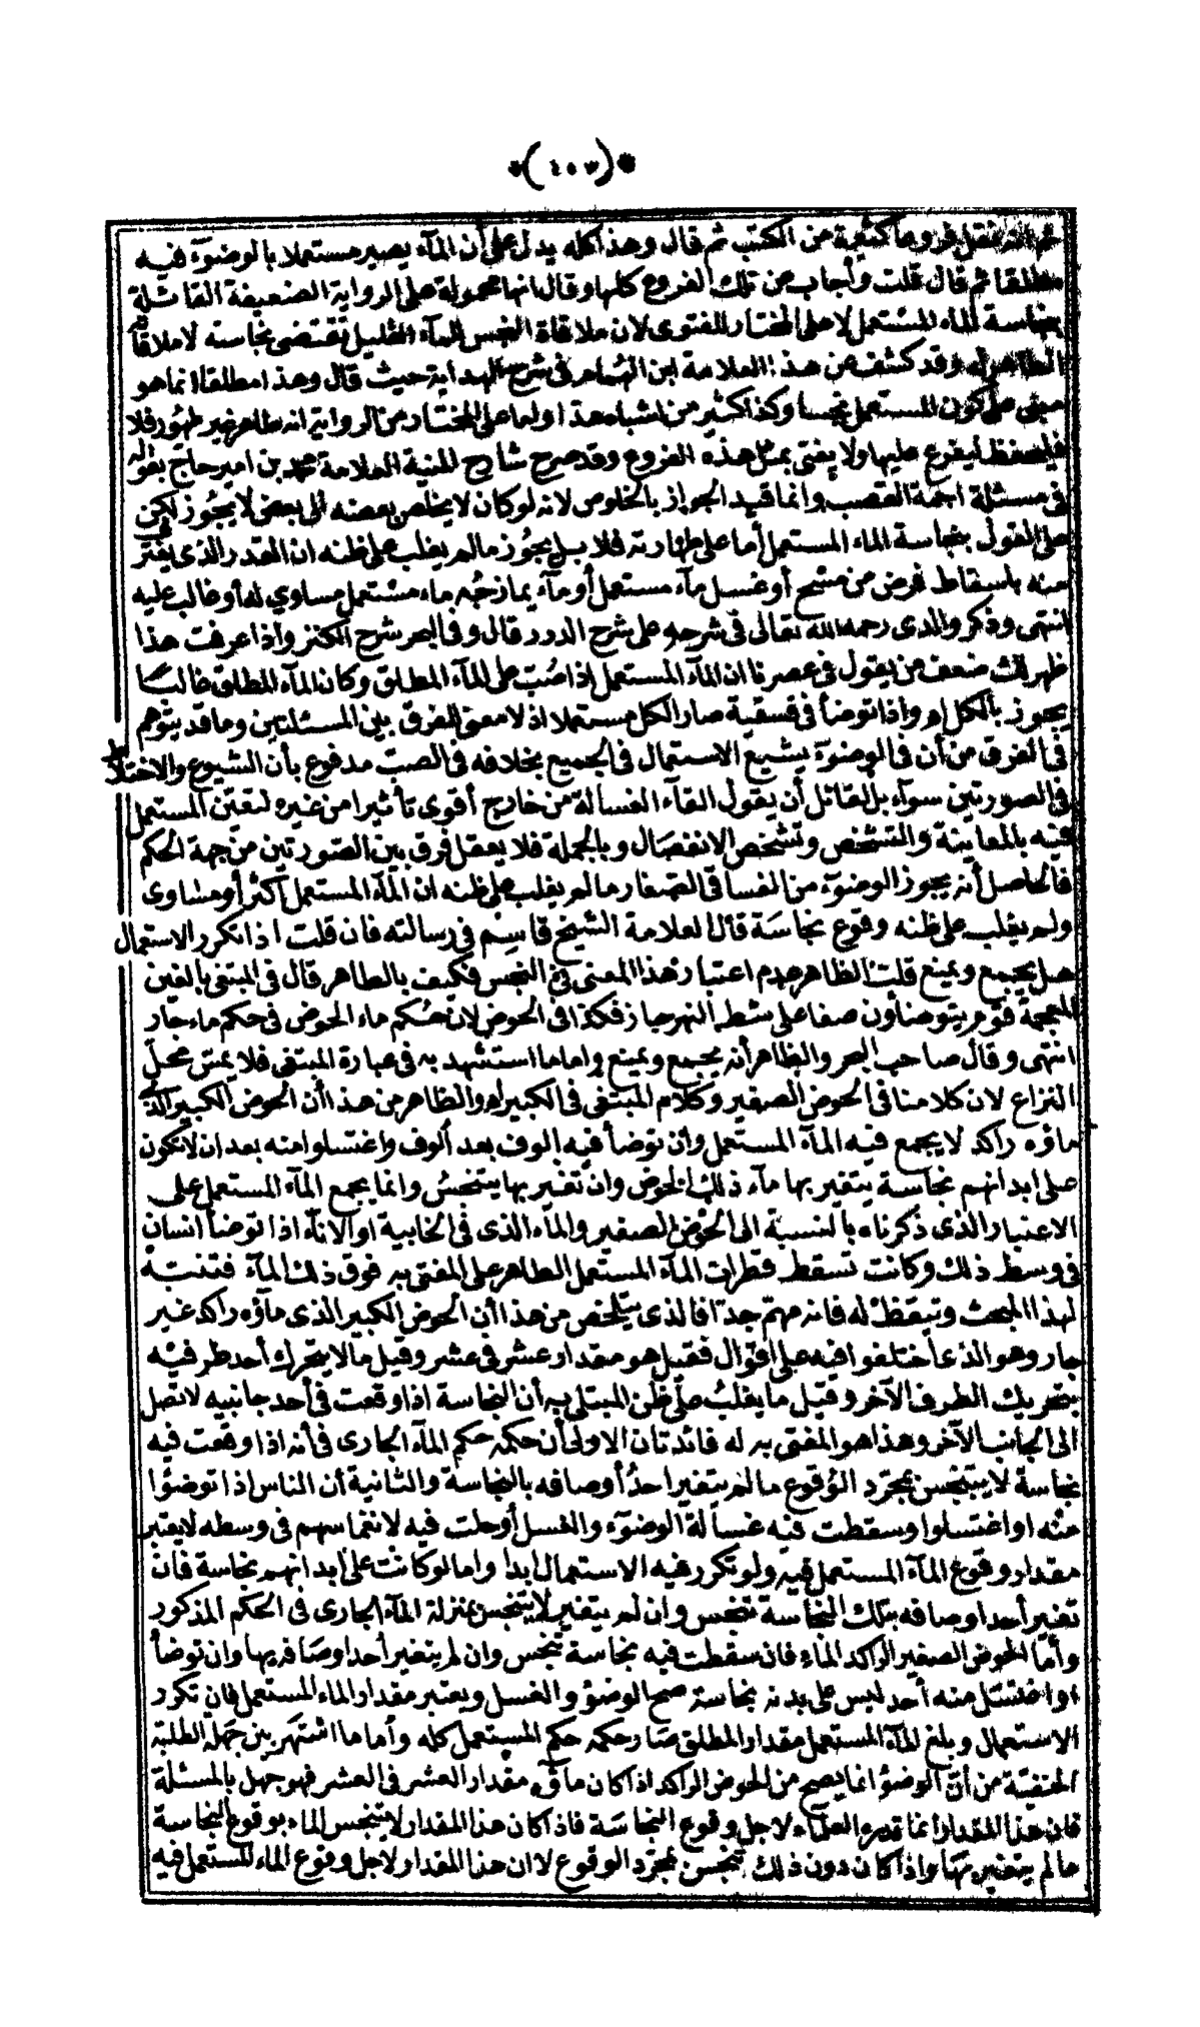 *(٤٠٣)*
فروعا كثيرة من الكتب ثم قال وهذا كله يدل على أن المآء يصير مستعملا بالوضوء فيه
مطلقا ثم قال قلت وأجاب عن تلك الفروع كلها وقال انها محمولة على الرواية الضعيفة القائلة
بنجاسة الماء المستعمل لا على المختار للفتوى لان ملاقاة النجس للمآء القليل تقتضى نجاسته لا ملاقاة
الطاهر له وقد كشف عن هذا العلامة ابن الهمام فى شرح الهداية حيث قال وهذا مطلقا انما هو
مبنى على كون المستعمل نجسا وكذا كثير من اشباه هذا واما على المختار من الرواية انه طاهر غير طهور فلا
فليحفظ ليفرع عليها ولا يفتى بمثل هذه الفروع وقد صرح شارح المنية العلامة محمد بن امير حاج بقوله
فى مسئلة اجمة القصب وانما قيد الجواز بالخلوص لانه لو كان لا يخلص بعضه الى بعض لا يجوز لكن
على القول بنجاسة الماء المستعمل أما على طهارته فلا بل يجوز مالم يغلب على ظنه ان القدر الذى يغترف
منه باسقاط فرض من مسح أو غسل مآء مستعمل أو مآء يمازجه ماء مستعمل مساوي له أو غالب عليه
انتهى وذكر والدى رحمه الله تعالى فى شرحه على شرح الدرر قال وفى البحر شرح الكنز واذا عرفت هذا
ظهر لك ضعف من يقول فى عصرنا ان المآء المستعمل اذا صب على المآء المطلق وكان المآء المطلق غالبا
يجوز بالكل له واذا توضأ فى فسقية صار الكل مستعملا اذ لا معنى للفرق بين المسئلتين وما قد يتوهم
فى الفرق من أن فى الوضوء يشيع الاستعمال فى الجميع بخلافه فى الصب مدفوع بأن الشيوع والاختلاط
فى الصورتين سوآء بل لقائل أن يقول القآء الغسالة من خارج أقوى تأثيرا من غيره لتعين المستعمل
فيه بالمعاينة والتشخص وتشخص الانفصال وبالجملة فلا يعقل فرق بين الصورتين من جهة الحكم
فالحاصل أنه يجوز الوضوء من الفساقى الصغار مالم يغلب على ظنه ان المآء المستعمل أكثر أو مساوى
ولم يغلب على ظنه وقوع نجاسة قال العلامة الشيخ قاسم فى رسالته فان قلت اذا تكرر الاستعمال
هل يجمع ويمنع قلت الظاهر عدم اعتبار هذا المعنى فى النجس فكيف بالطاهر قال فى المبتغى بالغين
المعجمة قوم يتوضأون صفا على شط النهر جاز فكذا فى الحوض لان حكم ماء الحوض فى حكم ماء جار
انتهى وقال صاحب البحر والظاهر أنه يجمع ويمنع واما ما استشهد به فى عبارة المبتغى فلا يمس محل
النزاع لان كلامنا فى الحوض الصغير وكلام المبتغى فى الكبير له والظاهر من هذا أن الحوض الكبير الذى
ماؤه راكد لا يجمع فيه المآء المستعمل وان توضأ فيه الوف بعد ألوف واغتسلوا منه بعد ان لا تكون
على ابدانهم نجاسة يتغير بها مآء ذلك الحوض وان تغير بها يتنجس وانما يجمع المآء المستعمل على
الاعتبار الذى ذكرناه بالنسبة الى الحوض الصغير والمآء الذى فى الخابية او الانآء اذا توضأ انسان
فى وسط ذلك وكانت تسقط قطرات المآء المستعمل الطاهر على المفتى به فوق ذلك المآء فتنبه
لهذا المبحث وتيقظ له فانه مهم جدا فالذى يتلخص من هذا أن الحوض الكبير الذى مآؤه راكد غير
جار وهو الذى اختلفوا فيه على اقوال فقيل هو مقدار عشر فى عشر وقيل مالا يتحرك أحد طرفيه
بتحريك الطرف الآخر وقيل ما يغلب على ظن المبتلى به أن النجاسة اذا وقعت فى أحد جانبيه لا تصل
الى الجانب الآخر وهذا هو المفتى به له فائدتان الاولى أن حكمه حكم المآء الجارى فى أنه اذا وقعت فيه
نجاسة لا يتنجس بمجرد الوقوع مالم يتغير احد أوصافه بالنجاسة والثانية أن الناس اذا توضؤا
منه او اغتسلوا وسقطت فيه غسالة الوضوء والغسل أو حلت فيه لانغماسهم فى وسطه لا يعتبر
مقدار وقوع المآء المستعمل فيه ولو تكرر فيه الاستعمال ابدا واما لو كانت على ابدانهم نجاسة فان
تغير أحد اوصافه بتلك النجاسة تنجس وان لم يتغير لا يتنجس بمنزلة المآء الجارى فى الحكم المذكور
وأما الحوض الصغير الراكد الماء فان سقطت فيه نجاسة تنجس وان لم يتغير أحد اوصافه بها وان توضأ
او اغتسل منه أحد ليس على بدنه نجاسة صح الوضؤ والغسل ويعتبر مقدار الماء المستعمل فان تكرر
الاستعمال وبلغ المآء المستعمل مقدار المطلق صار حكمه حكم المستعمل كله وأما ما اشتهر بين جهلة الطلبة
الحنفية من أن الوضؤ انما يصح من الحوض الراكد اذا كان مآؤه مقدار العشر فى العشر فهو جهل بالمسئلة
فان هذا المقدار أنما قدره العلمآء لاجل وقوع النجاسة فاذا كان هذا المقدار لا يتنجس الماء بوقوع النجاسة
مالم يتغير بها واذا كان دون ذلك تنجس بمجرد الوقوع لا ان هذا المقدار لاجل وقوع الماء المستعمل فيه